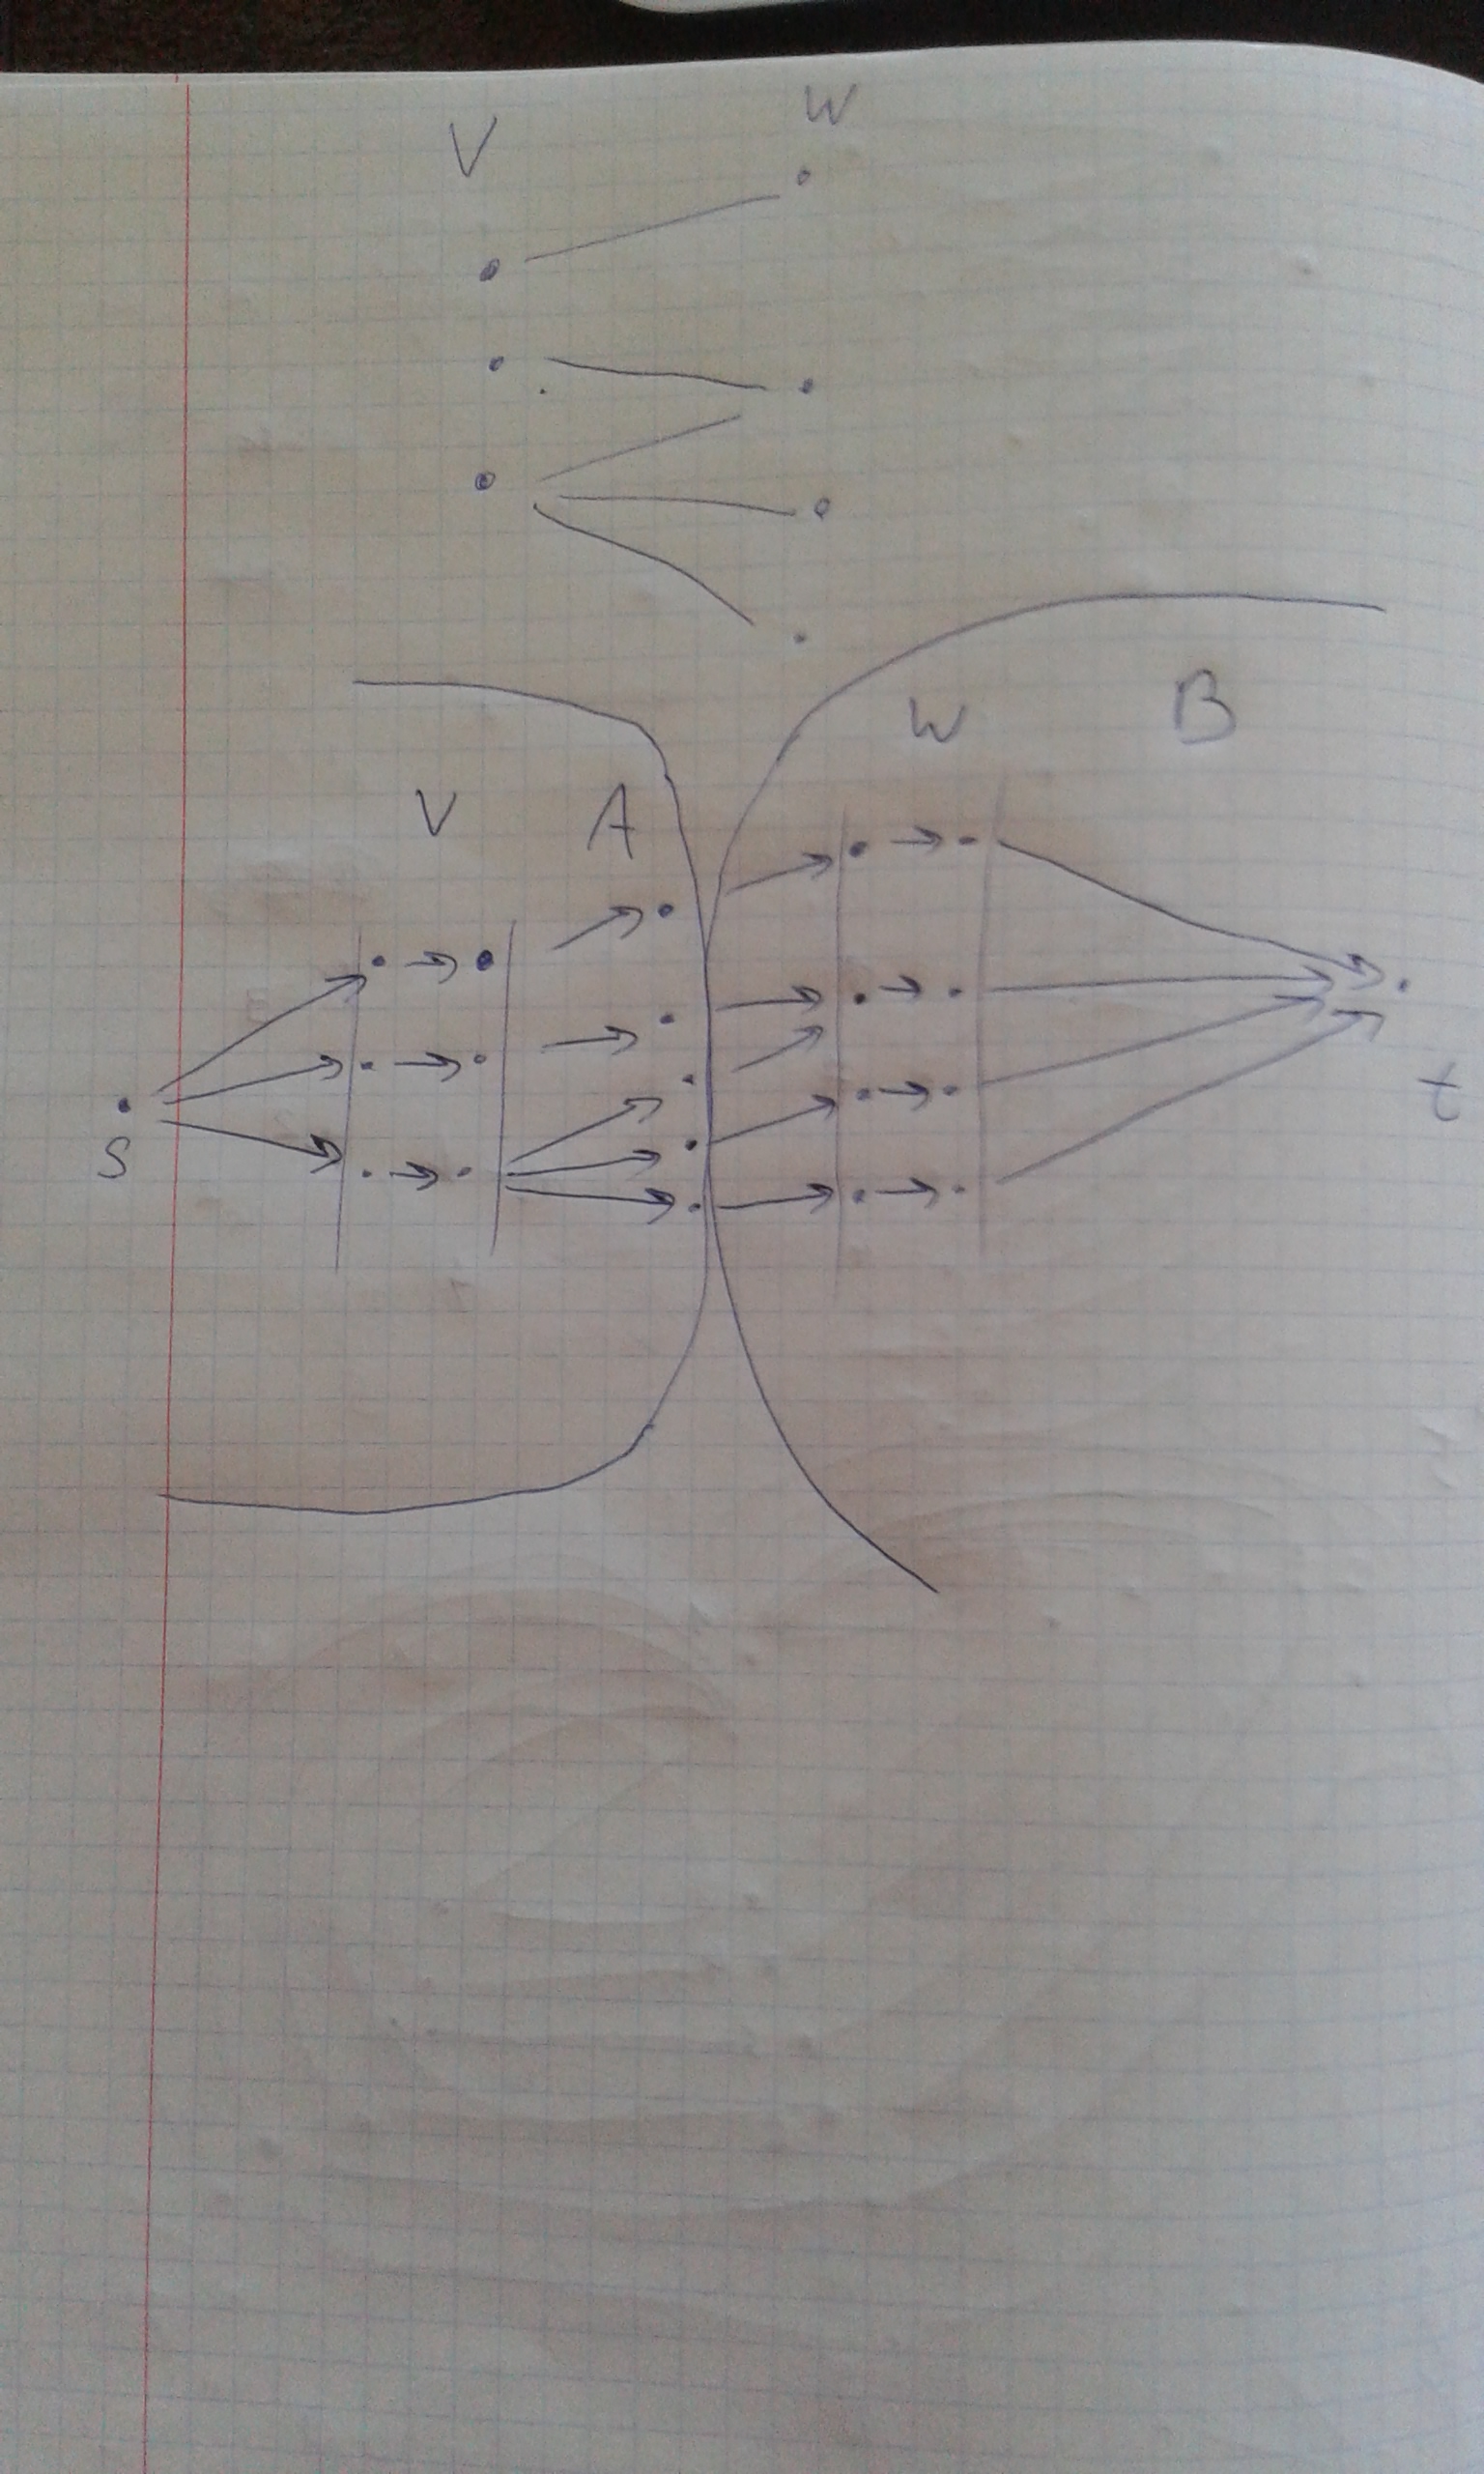 V W
W B
V A
S t